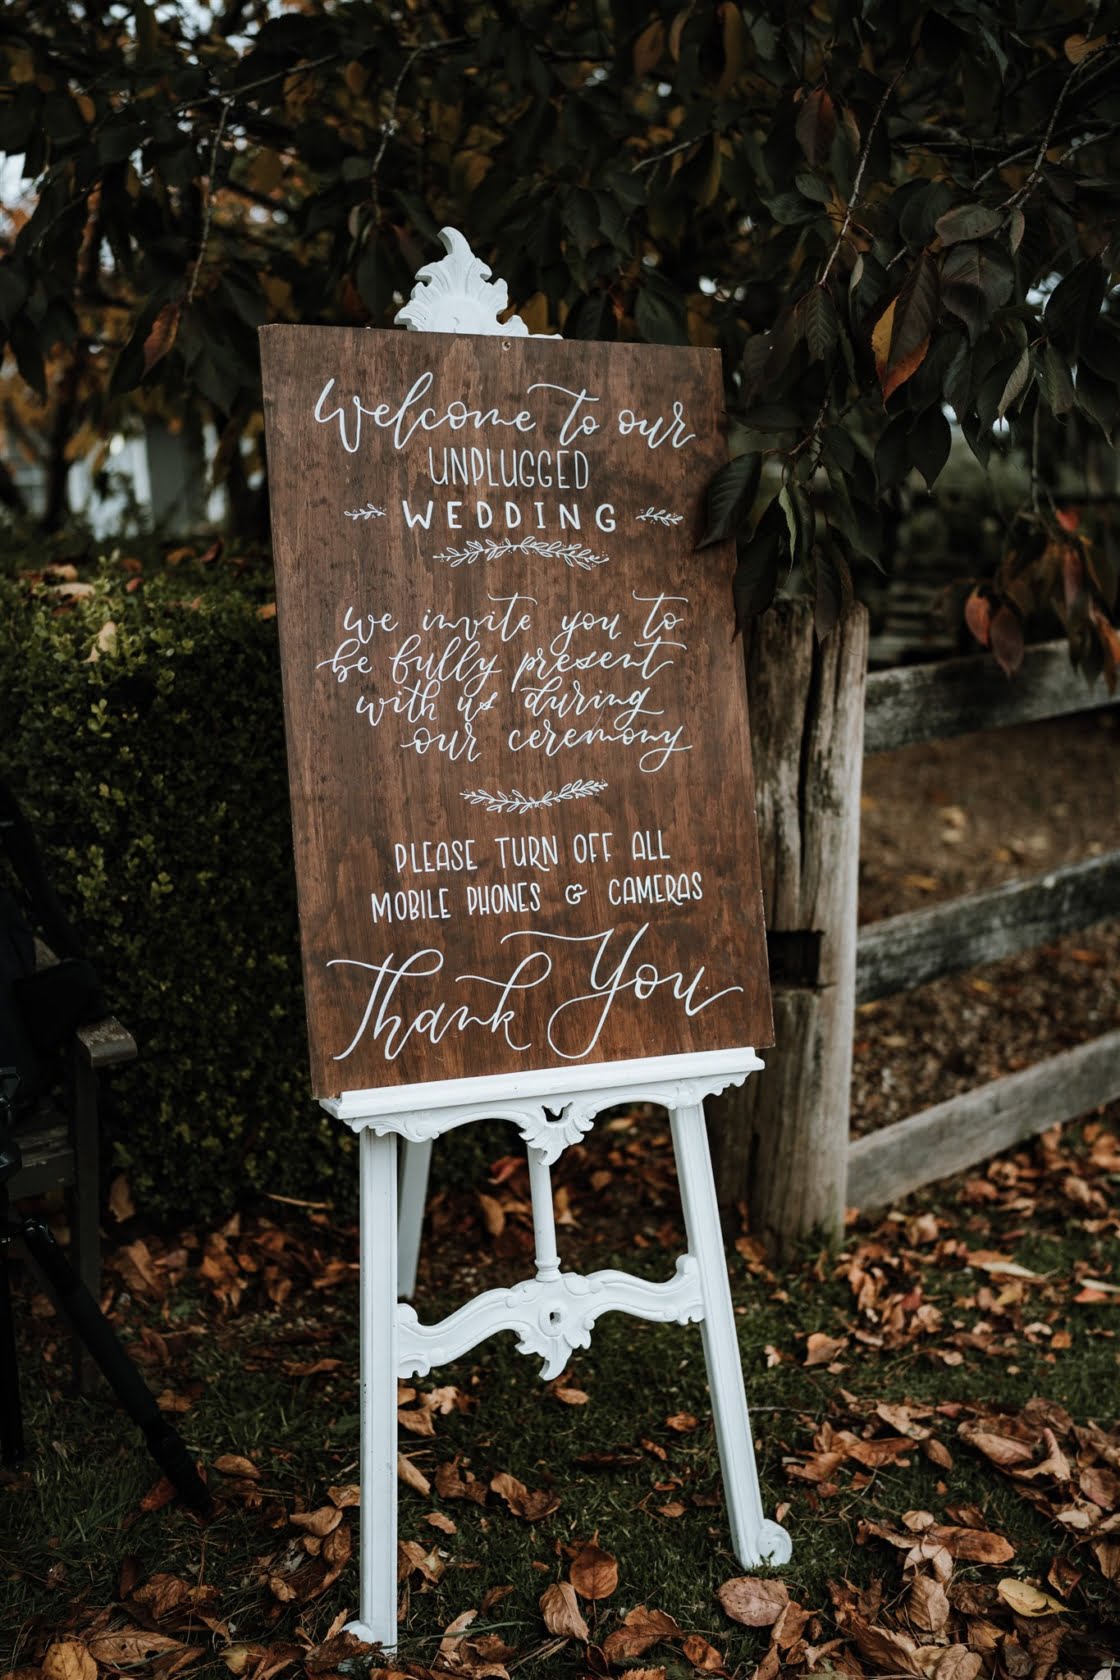 Welcome to our
UNPLUGGED
WEDDING
we invite you to
be fully present
with us during
our ceremony
PLEASE TURN OFF ALL
MOBILE PHONES & CAMERAS
Thank You